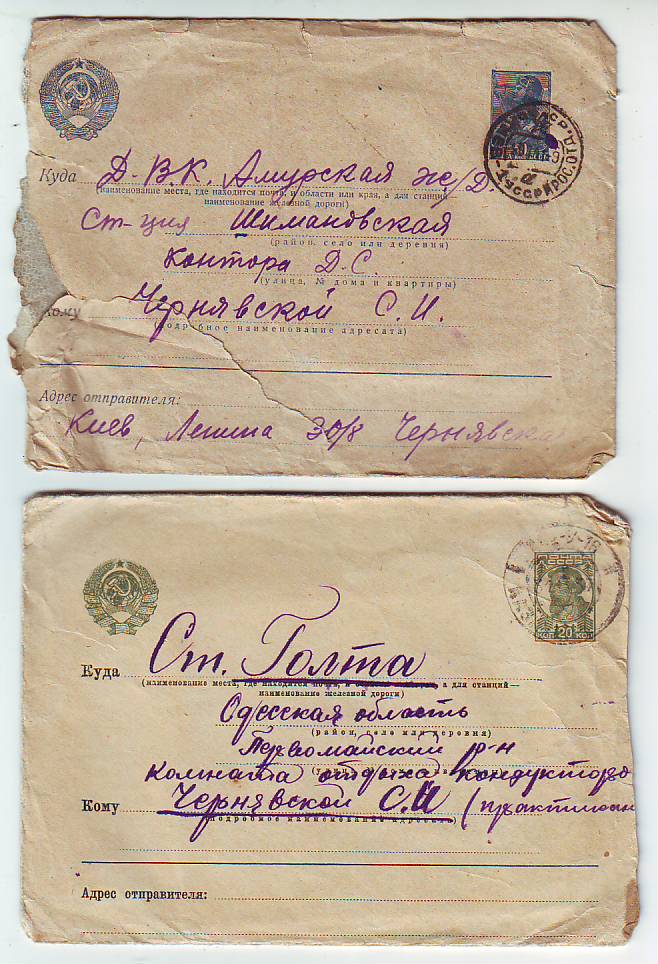 Куда Д.В.К. Амурская ж/д.
(наименование места, где находится почта, и области или края, а для станций
наименование железной дороги)
Ст-ция Шимановская
(район, село или деревня)
Контора Д.С.
(улица, № дома и квартиры)
Кому Чернявской С.И.
(подробное наименование адресата)
Адрес отправителя:
Киев, Ленина 30/8 Чернявска
20
КОП КОП
Куда Ст. Голта
(наименование места, где находится почта, и области или края, а для станций—
наименование железной дороги)
Одесская область
(район, село или деревня)
Первомайский р-н
комната отдыха кондукторов
Кому Чернявской С.И (практикан
(подробное наименование адресата)
Адрес отправителя: